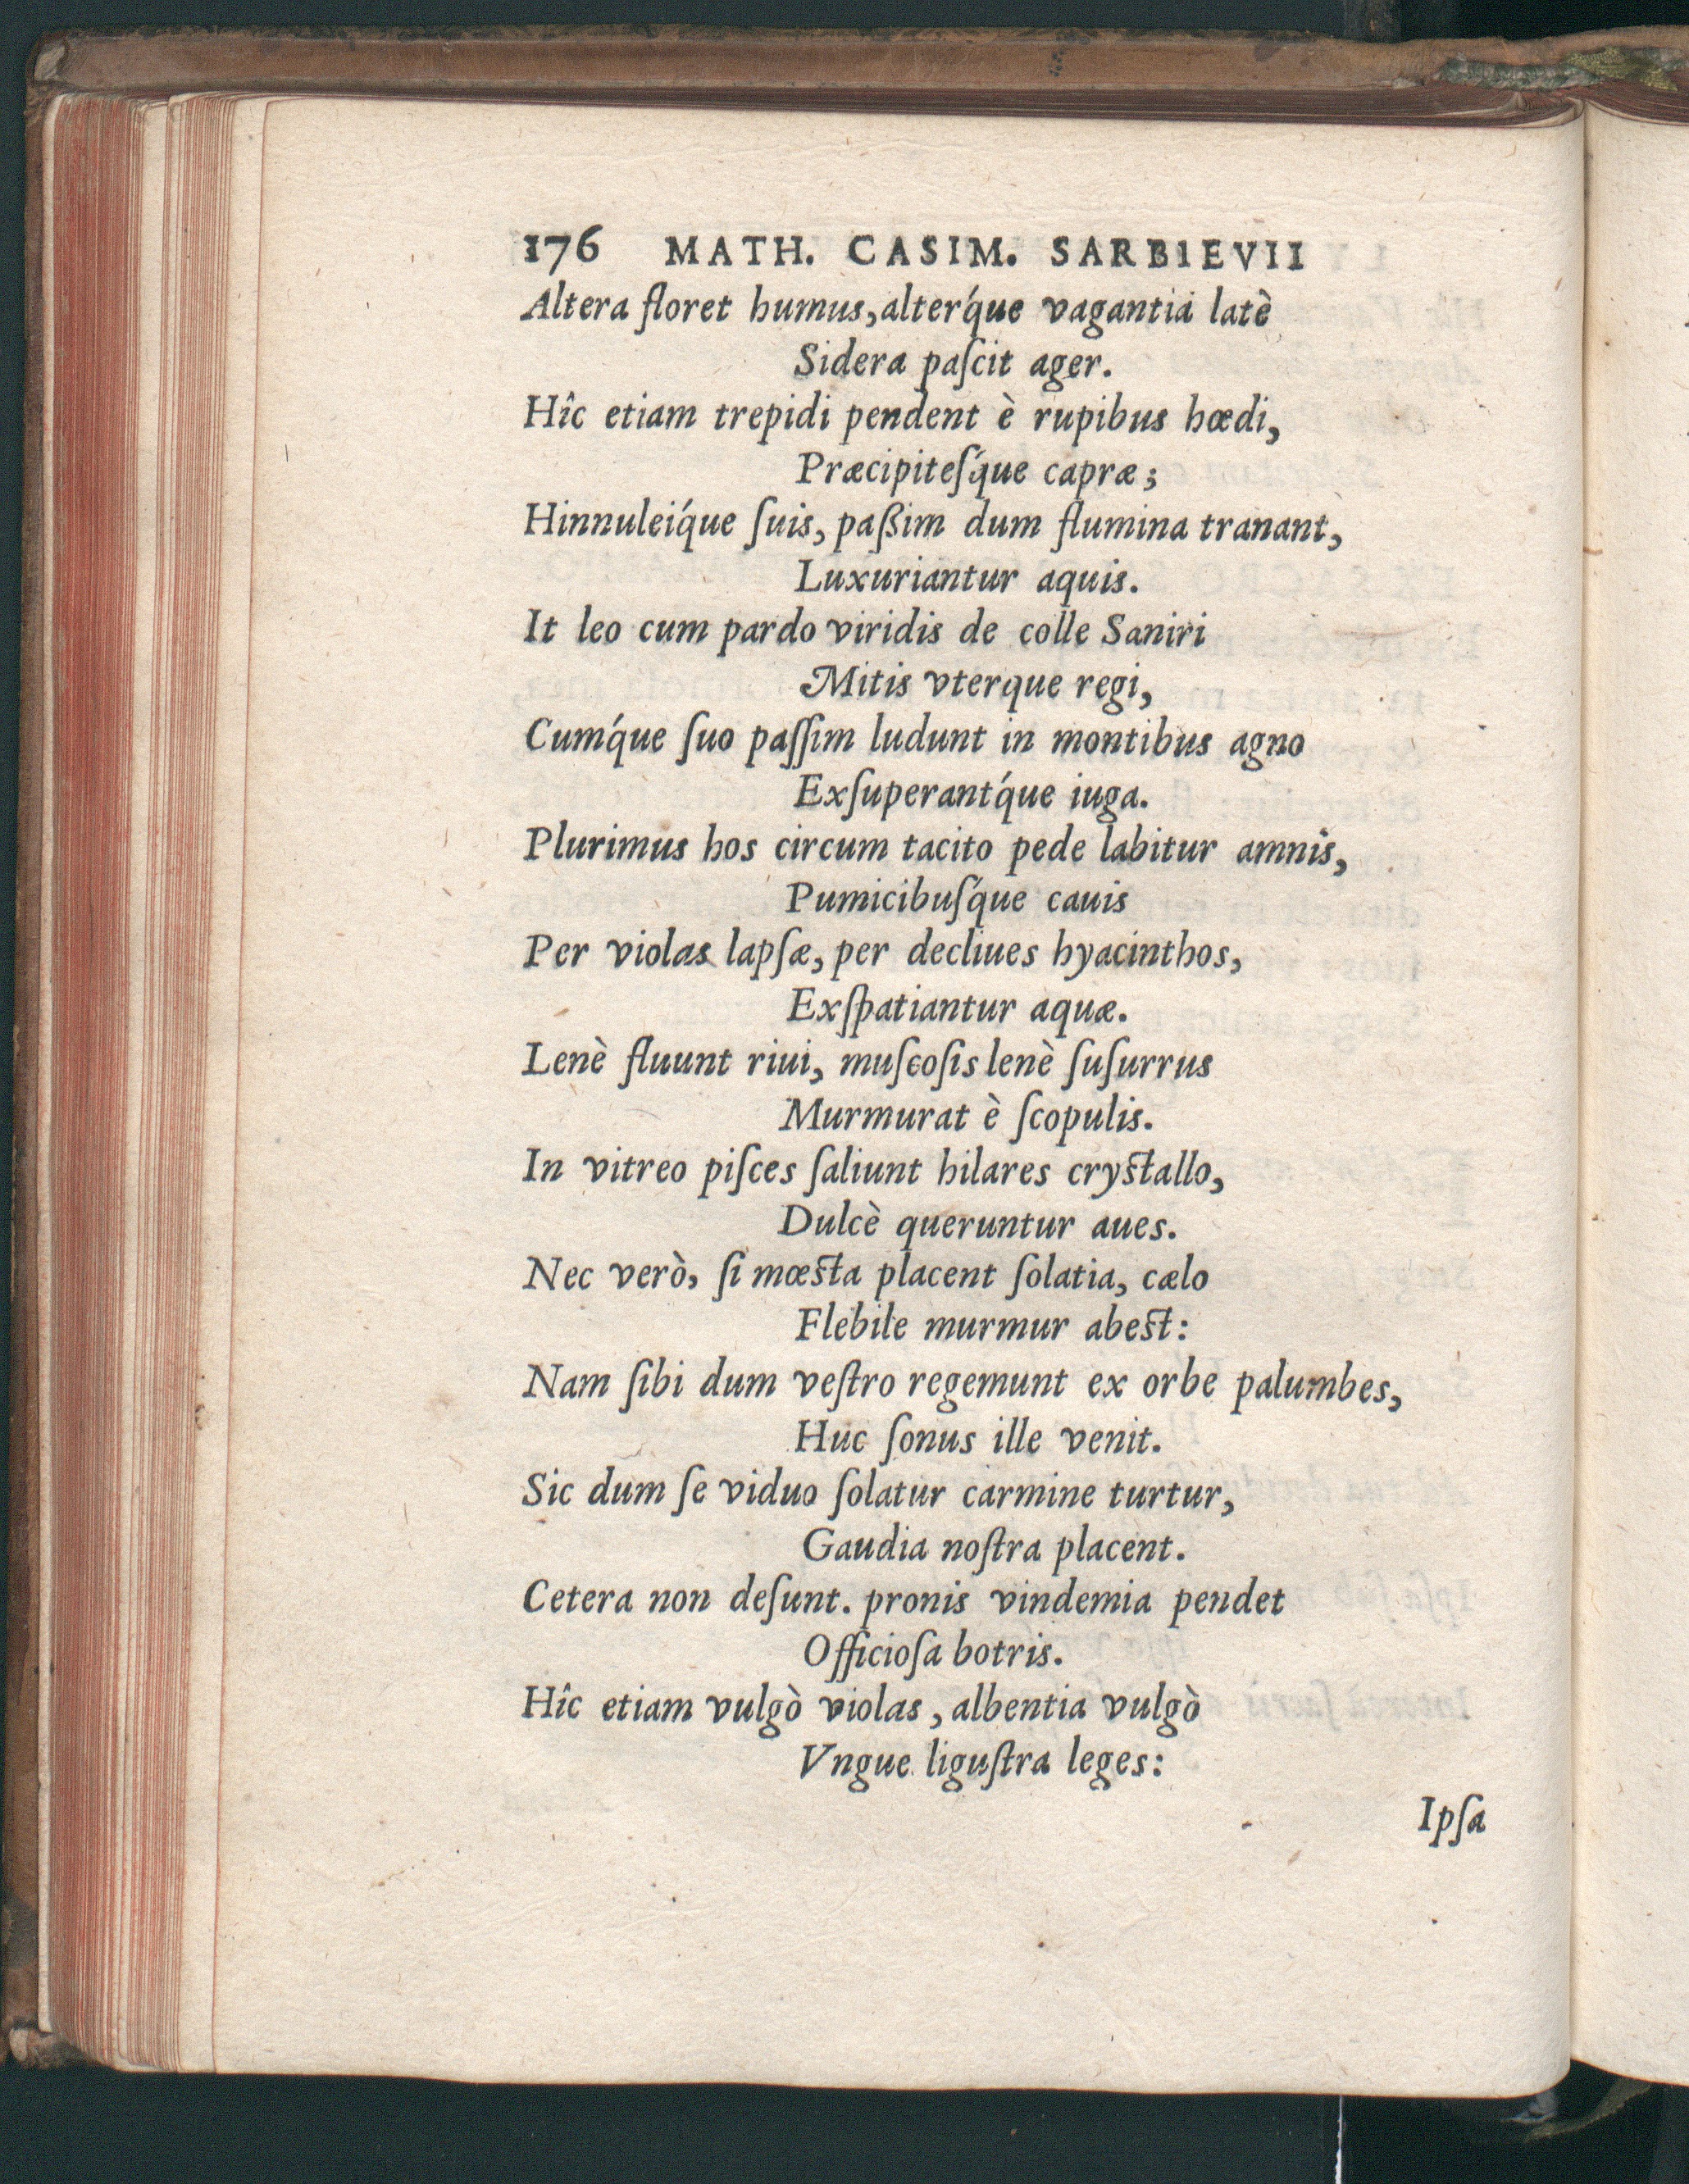 176 MATH. CASIM. SARBIEVII
Altera floret humus, alterq́ue vagantia latè
Sidera paſcit ager.
Hîc etiam trepidi pendent è rupibus hœdi,
Præcipiteſq́ue capræ;
Hinnuleiq́ue ſuis, paßim dum flumina tranant,
Luxuriantur aquis.
It leo cum pardo viridis de colle Saniri
Mitis vterque regi,
Cumq́ue ſuo paſſim ludunt in montibus agno
Exſuperantq́ue iuga.
Plurimus hos circum tacito pede labitur amnis,
Pumicibuſq́ue cauis
Per violas lapſæ, per decliues hyacinthos,
Exſpatiantur aquæ.
Lenè fluunt riui, muſcoſis lenè ſuſurrus
Murmurat è ſcopulis.
In vitreo piſces ſaliunt hilares cryſtallo,
Dulcè queruntur aues.
Nec verò, ſi mœſta placent ſolatia, cælo
Flebile murmur abeſt:
Nam ſibi dum veſtro regemunt ex orbe palumbes,
Huc ſonus ille venit.
Sic dum ſe viduo ſolatur carmine turtur,
Gaudia noſtra placent.
Cetera non deſunt. pronis vindemia pendet
Officioſa botris.
Hîc etiam vulgò violas, albentia vulgò
Vngue liguſtra leges:
Ipſa